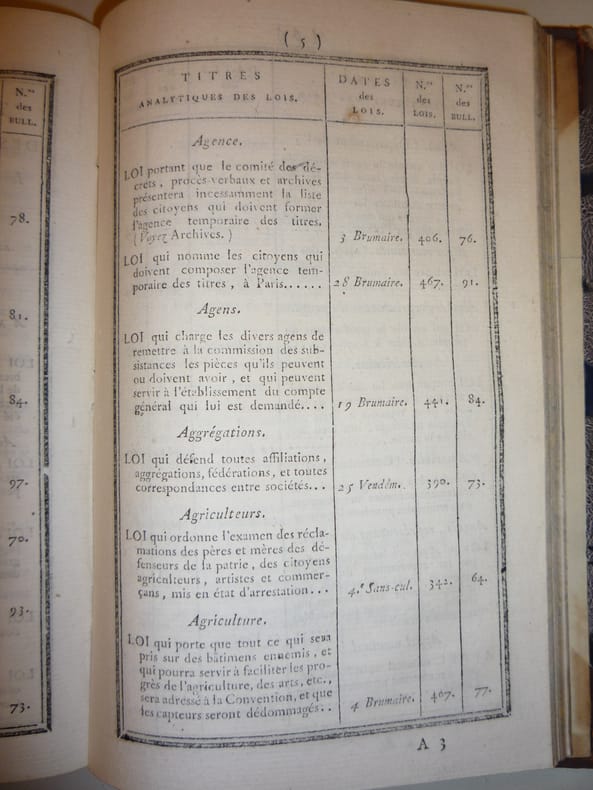 N.os
des
BULL.
78.
81.
84.
97.
70.
93.
73.
( 5 )
TITRES
ANALYTIQUES DES LOIS.
DATES
des
LOIS.
N.os
des
LOIS.
N.os
des
BULL.
Agence.
LOI portant que le comité des dé-
crets, procès-verbaux et archives
présentera incessamment la liste
des citoyens qui doivent former
l'agence temporaire des titres.
(Voyez Archives.) 3 Brumaire. 406. 76.
LOI qui nomme les citoyens qui
doivent composer l'agence tem-
poraire des titres, à Paris...... 28 Brumaire. 467. 91.
Agens.
LOI qui charge les divers agens de
remettre à la commission des sub-
sistances les pièces qu'ils peuvent
ou doivent avoir, et qui peuvent
servir à l'établissement du compte
général qui lui est demandé.... 19 Brumaire. 441. 84.
Aggrégations.
LOI qui défend toutes affiliations,
aggrégations, fédérations, et toutes
correspondances entre sociétés... 25 Vendém. 390. 73.
Agriculteurs.
LOI qui ordonne l'examen des récla-
mations des pères et mères des dé-
fenseurs de la patrie, des citoyens
agriculteurs, artistes et commer-
çans, mis en état d'arrestation... 4.e Sans-cul. 342. 64.
Agriculture.
LOI qui porte que tout ce qui sera
pris sur des bâtimens ennemis, et
qui pourra servir à faciliter les pro-
grès de l'agriculture, des arts, etc.,
sera adressé à la Convention, et que
les capteurs seront dédommagés.. 4 Brumaire. 407. 77.
A 3